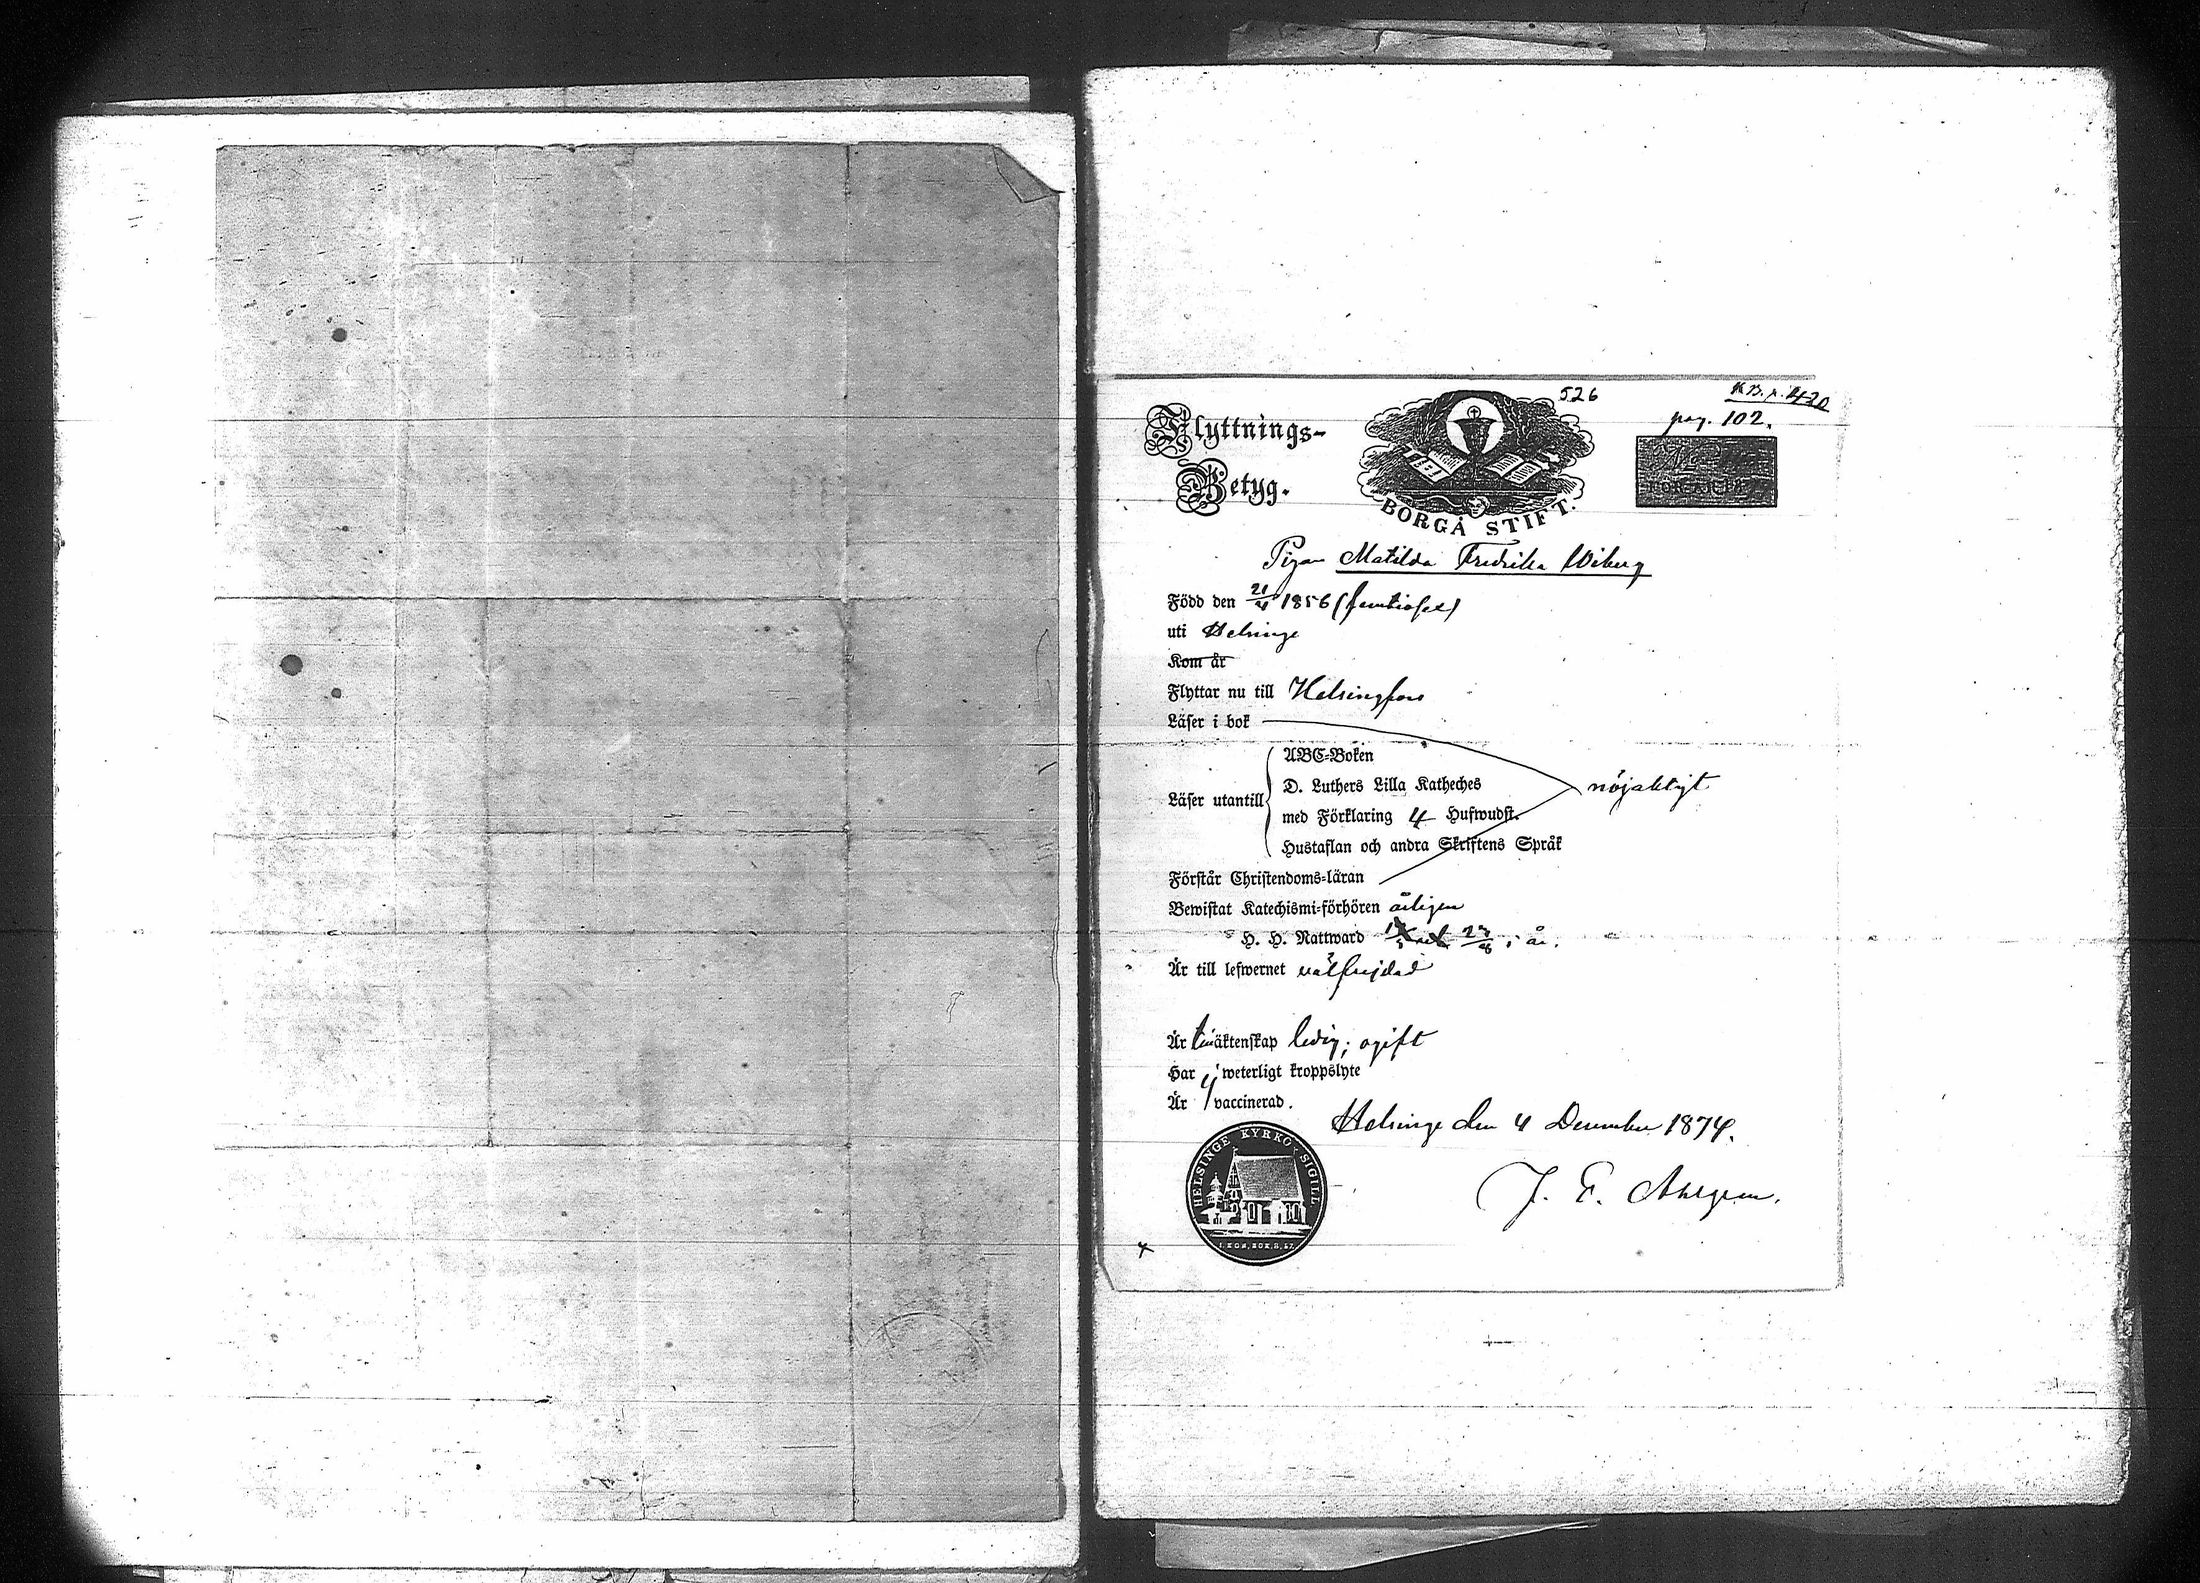 526
K.B. p. 420
pag. 102.
Flyttnings-
Betyg.
BORGÅ STIFT.
Pigan Matilda Fredrika Wiberg
Född den 21/4 1856 (femtiosex)
uti Helsinge
Kom år
Flyttar nu till Helsingfors
Läser i bok
ABC-Boken
D. Luthers Lilla Katheches
Läser utantill
nöjaktigt
med Förklaring 4 Hufwudst.
Hustaflan och andra Skriftens Språk
Förstår Christendoms-läran
Bewistat Katechismi-förhören årligen
" H. H. Nattward i år.
Är till lefwernet välfrejdad
Är till äktenskap ledig; ogift
Har ej weterligt kroppslyte
Är vaccinerad.
Helsinge den 4 December 1874.
J. F.
HELSINGE KYRKO SIGILL
1. KON. BOK. 8, 57.